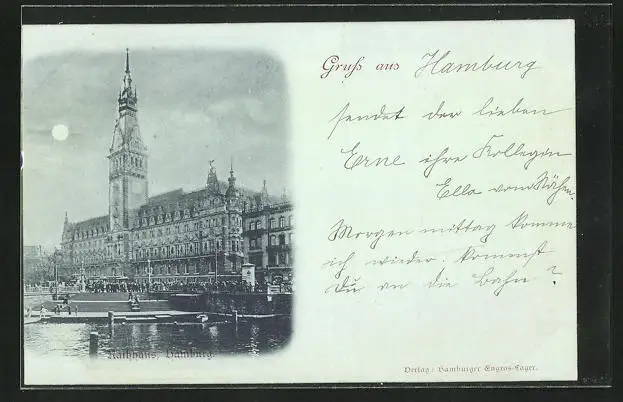 Gruß aus Hamburg
sendet der lieben
Erne ihre Kollegin
Ella vom Nähen.
Morgen mittag komme
ich wieder. Kommst
Du an die Bahn?
Rathhaus, Hamburg.
Verlag: Hamburger Engros-Lager.